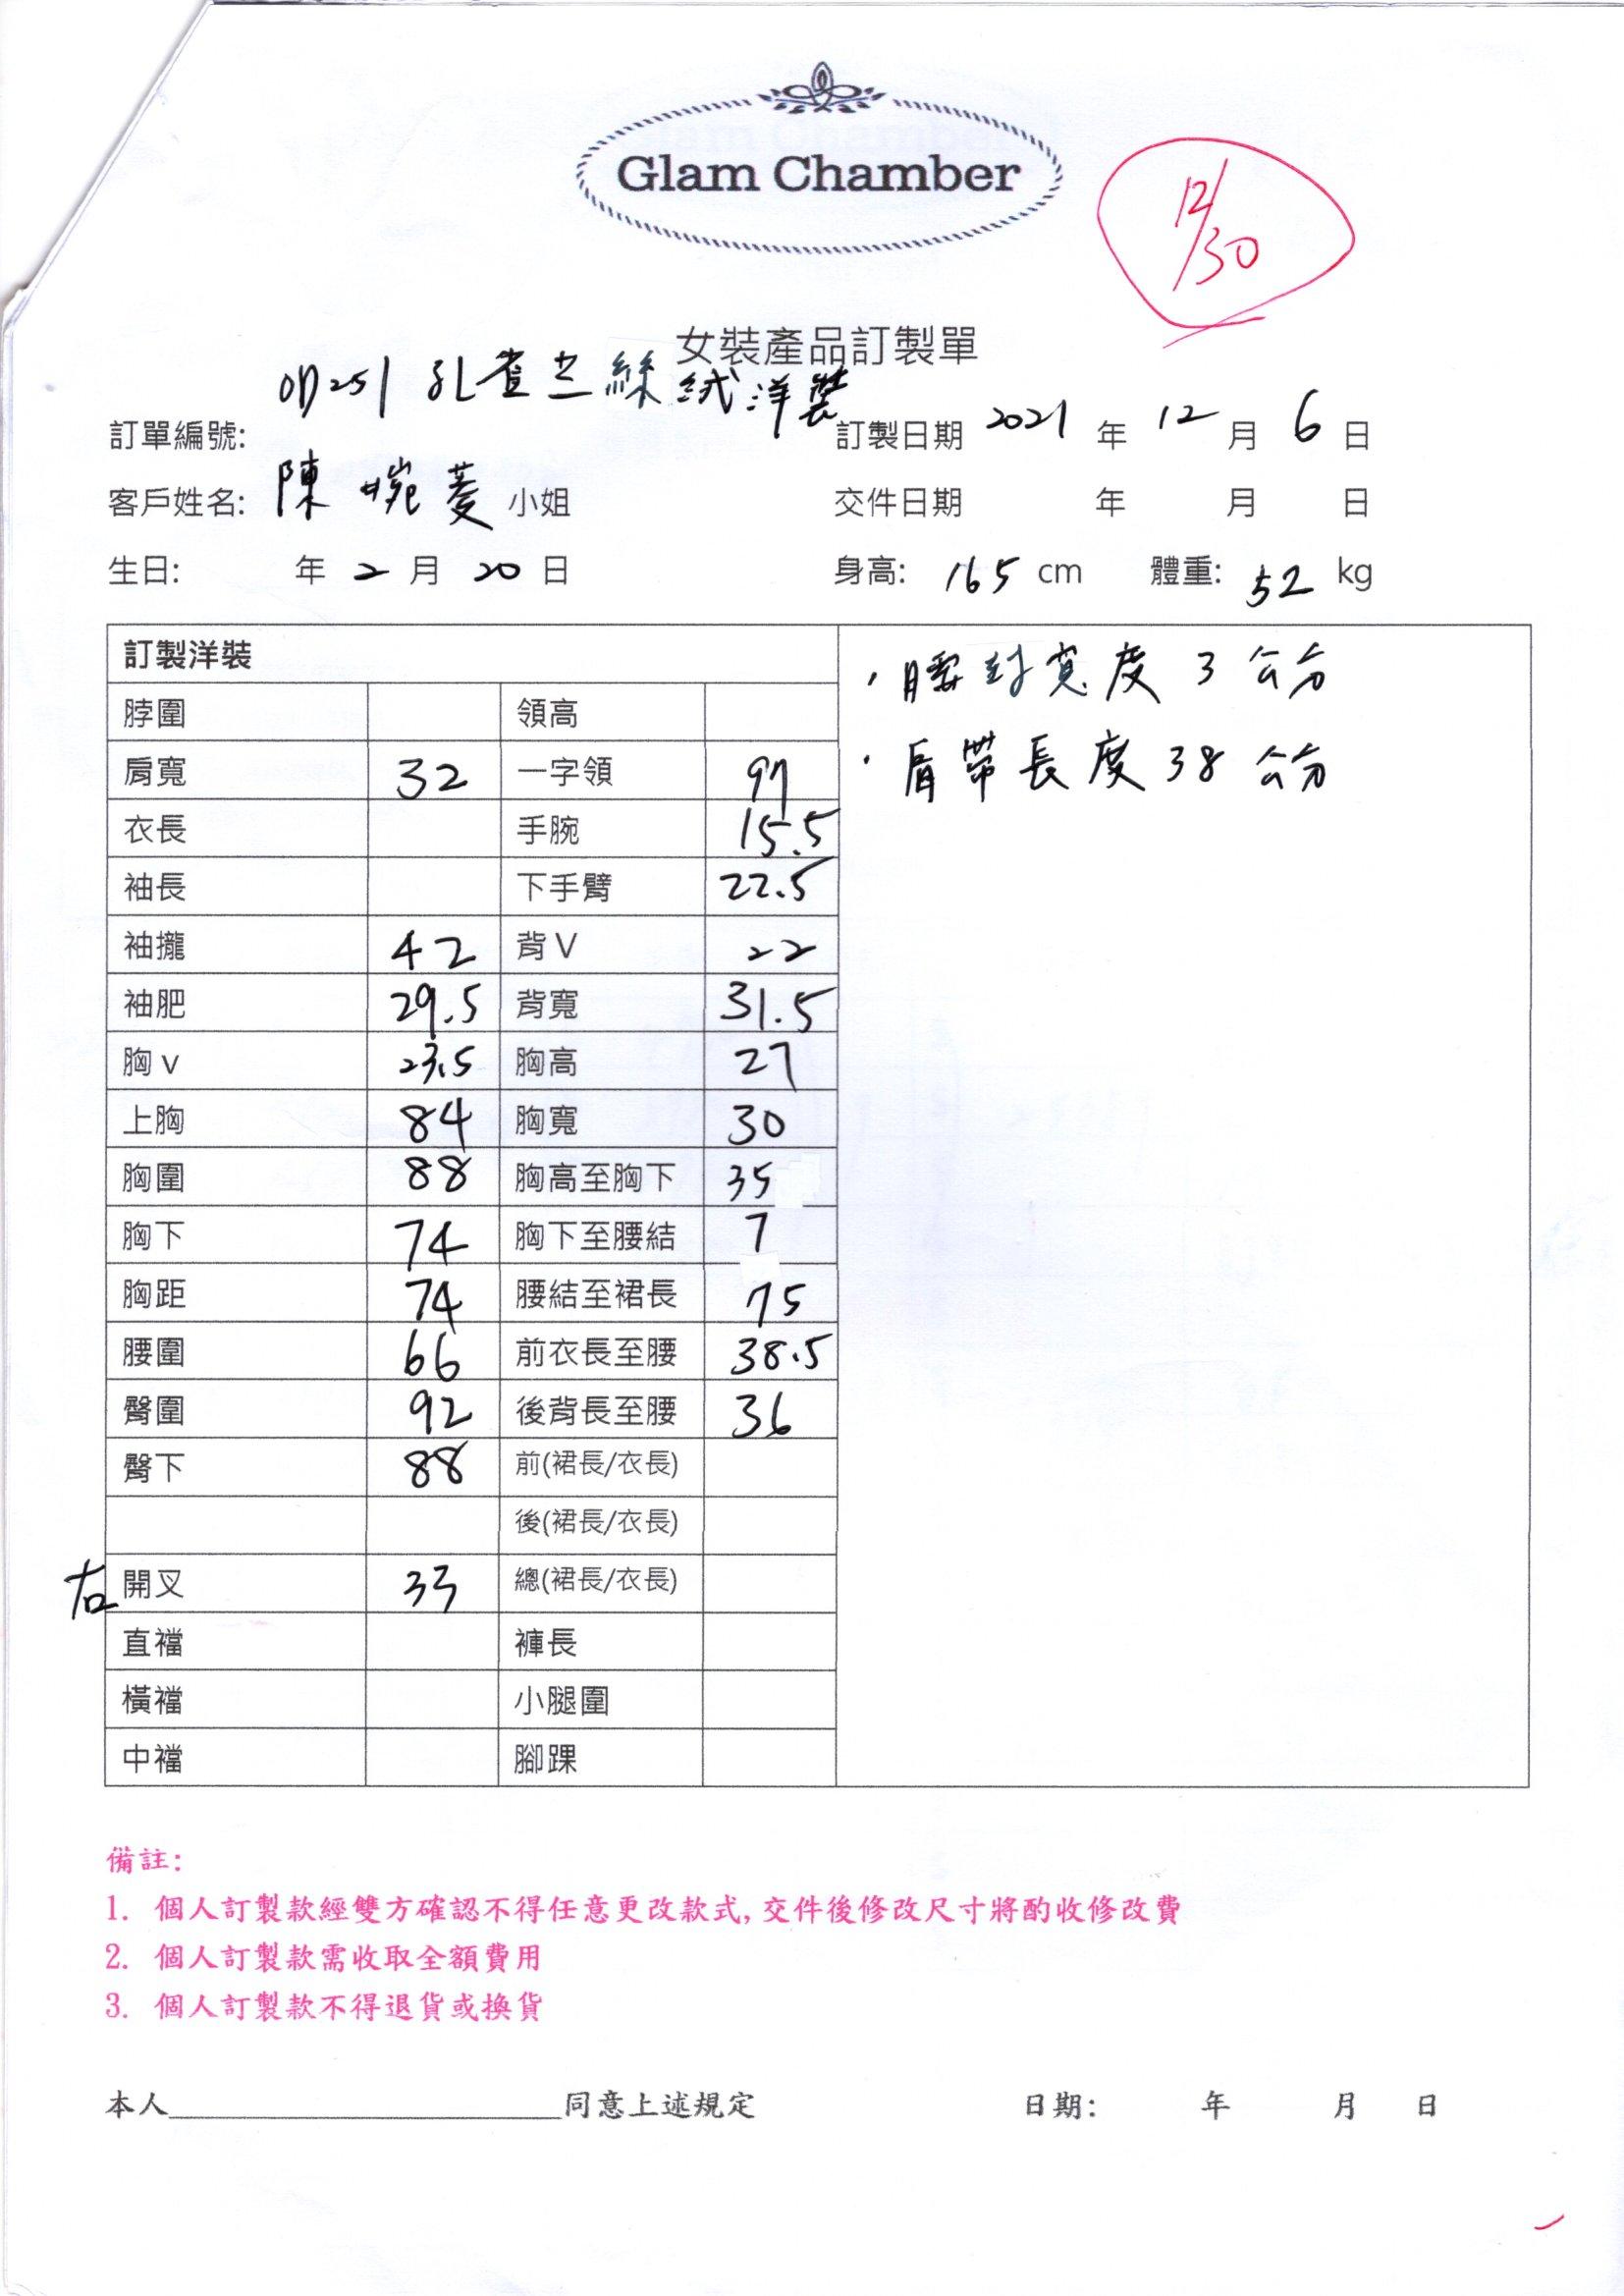 Glam Chamber
12/30
女裝產品訂製單
訂單編號: 0725| 孔雀立絲絨洋裝 訂製日期 2021 年 12 月 6 日
客戶姓名: 陳婉菱 小姐 交件日期 年 月 日
生日: 年 2 月 20 日 身高: 165 cm 體重: 52 kg
訂製洋裝
脖圍 領高
肩寬 32 一字領 97
衣長 手腕 15.5
袖長 下手臂 22.5
袖攏 42 背V 22
袖肥 29.5 背寬 31.5
胸v 23.5 胸高 27
上胸 84 胸寬 30
胸圍 88 胸高至胸下 35
胸下 74 胸下至腰結 7
胸距 74 腰結至裙長 75
腰圍 66 前衣長至腰 38.5
臀圍 92 後背長至腰 36
臀下 88 前(裙長/衣長)
後(裙長/衣長)
右 開叉 33 總(裙長/衣長)
直襠 褲長
橫襠 小腿圍
中襠 腳踝
・腰封寬度 3 公分
・肩帶長度 38 公分
備註:
1. 個人訂製款經雙方確認不得任意更改款式, 交件後修改尺寸將酌收修改費
2. 個人訂製款需收取全額費用
3. 個人訂製款不得退貨或換貨
本人______________________同意上述規定 日期: 年 月 日